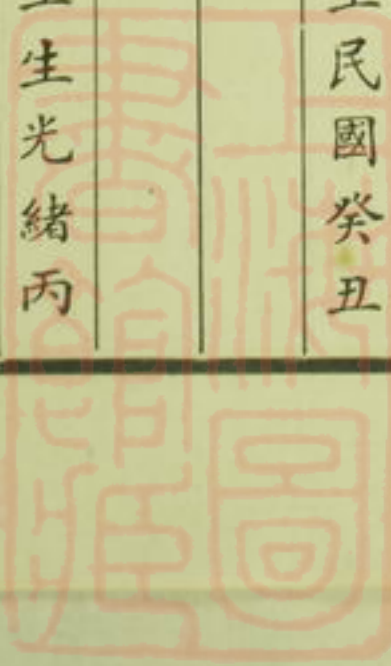 民國癸丑
生光緒丙
上海圖書館藏